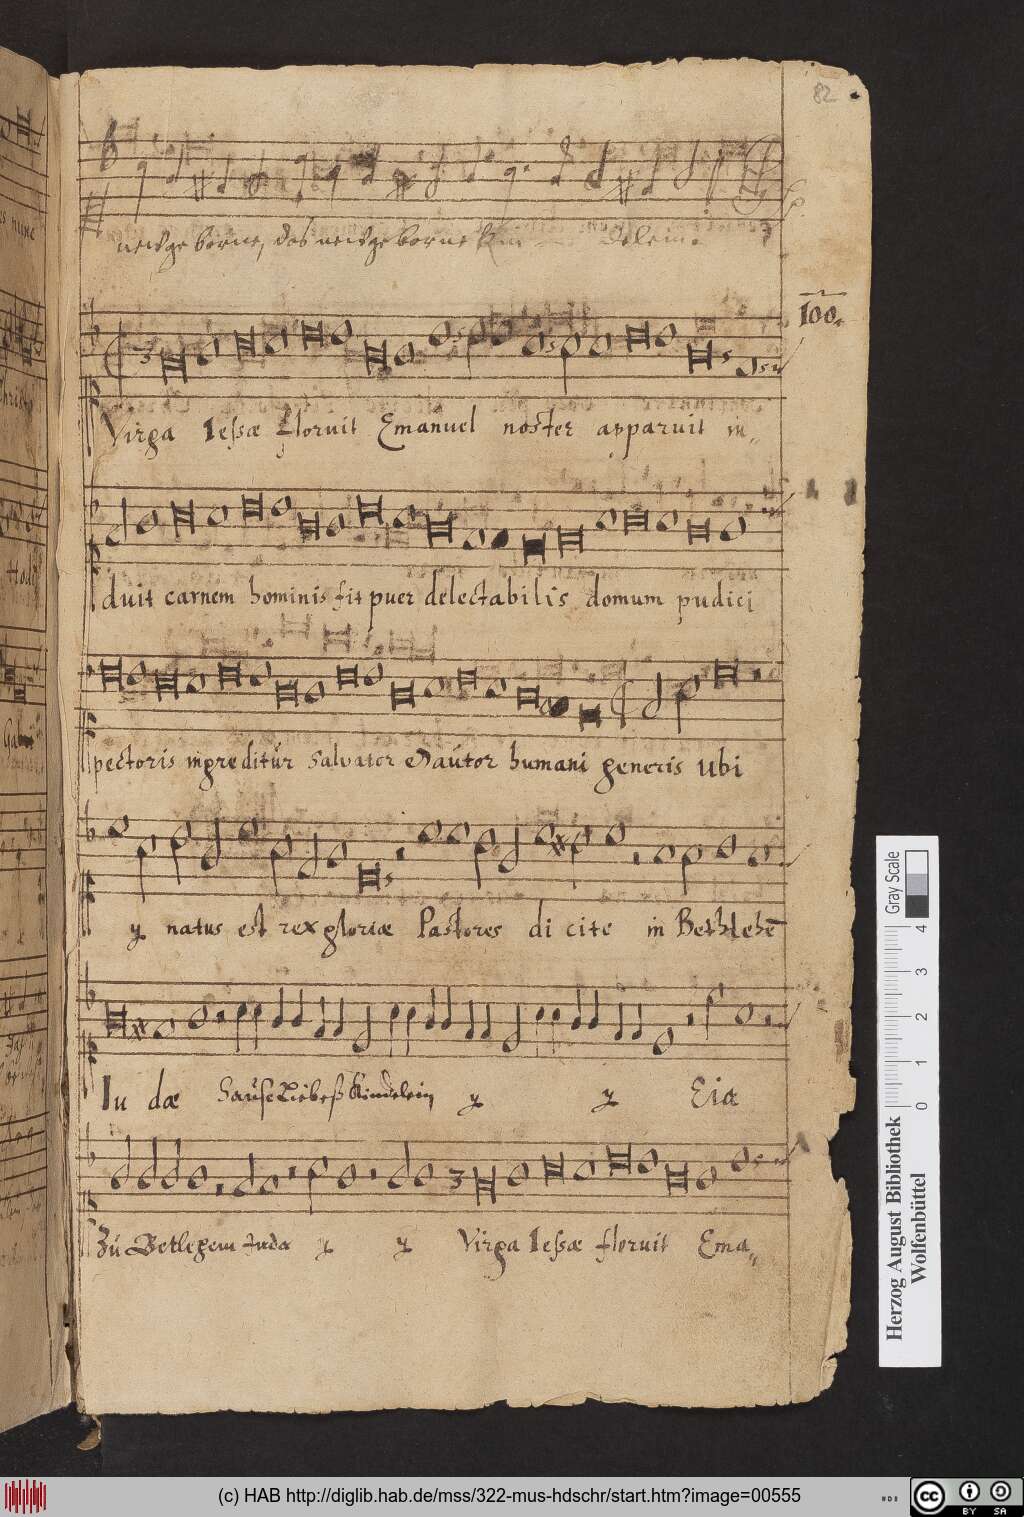 82
newge borne, das newge borne Kin delein.
100.
Virga Iessæ floruit Emanuel noster apparuit in„
duit carnem hominis fit puer delectabilis domum pudici
pectoris ingreditur Salvator & autor humani generis Ubi
y natus est rex gloriæ Pastores di cite in Bethlehē
Iu dæ Sause Liebeß Kindelein y y Eia
Zu Betlehem Juda y y Virga Iessæ floruit Ema„
Gray Scale
0 1 2 3 4
Herzog August Bibliothek
Wolfenbüttel
(c) HAB http://diglib.hab.de/mss/322-mus-hdschr/start.htm?image=00555
cc BY SA